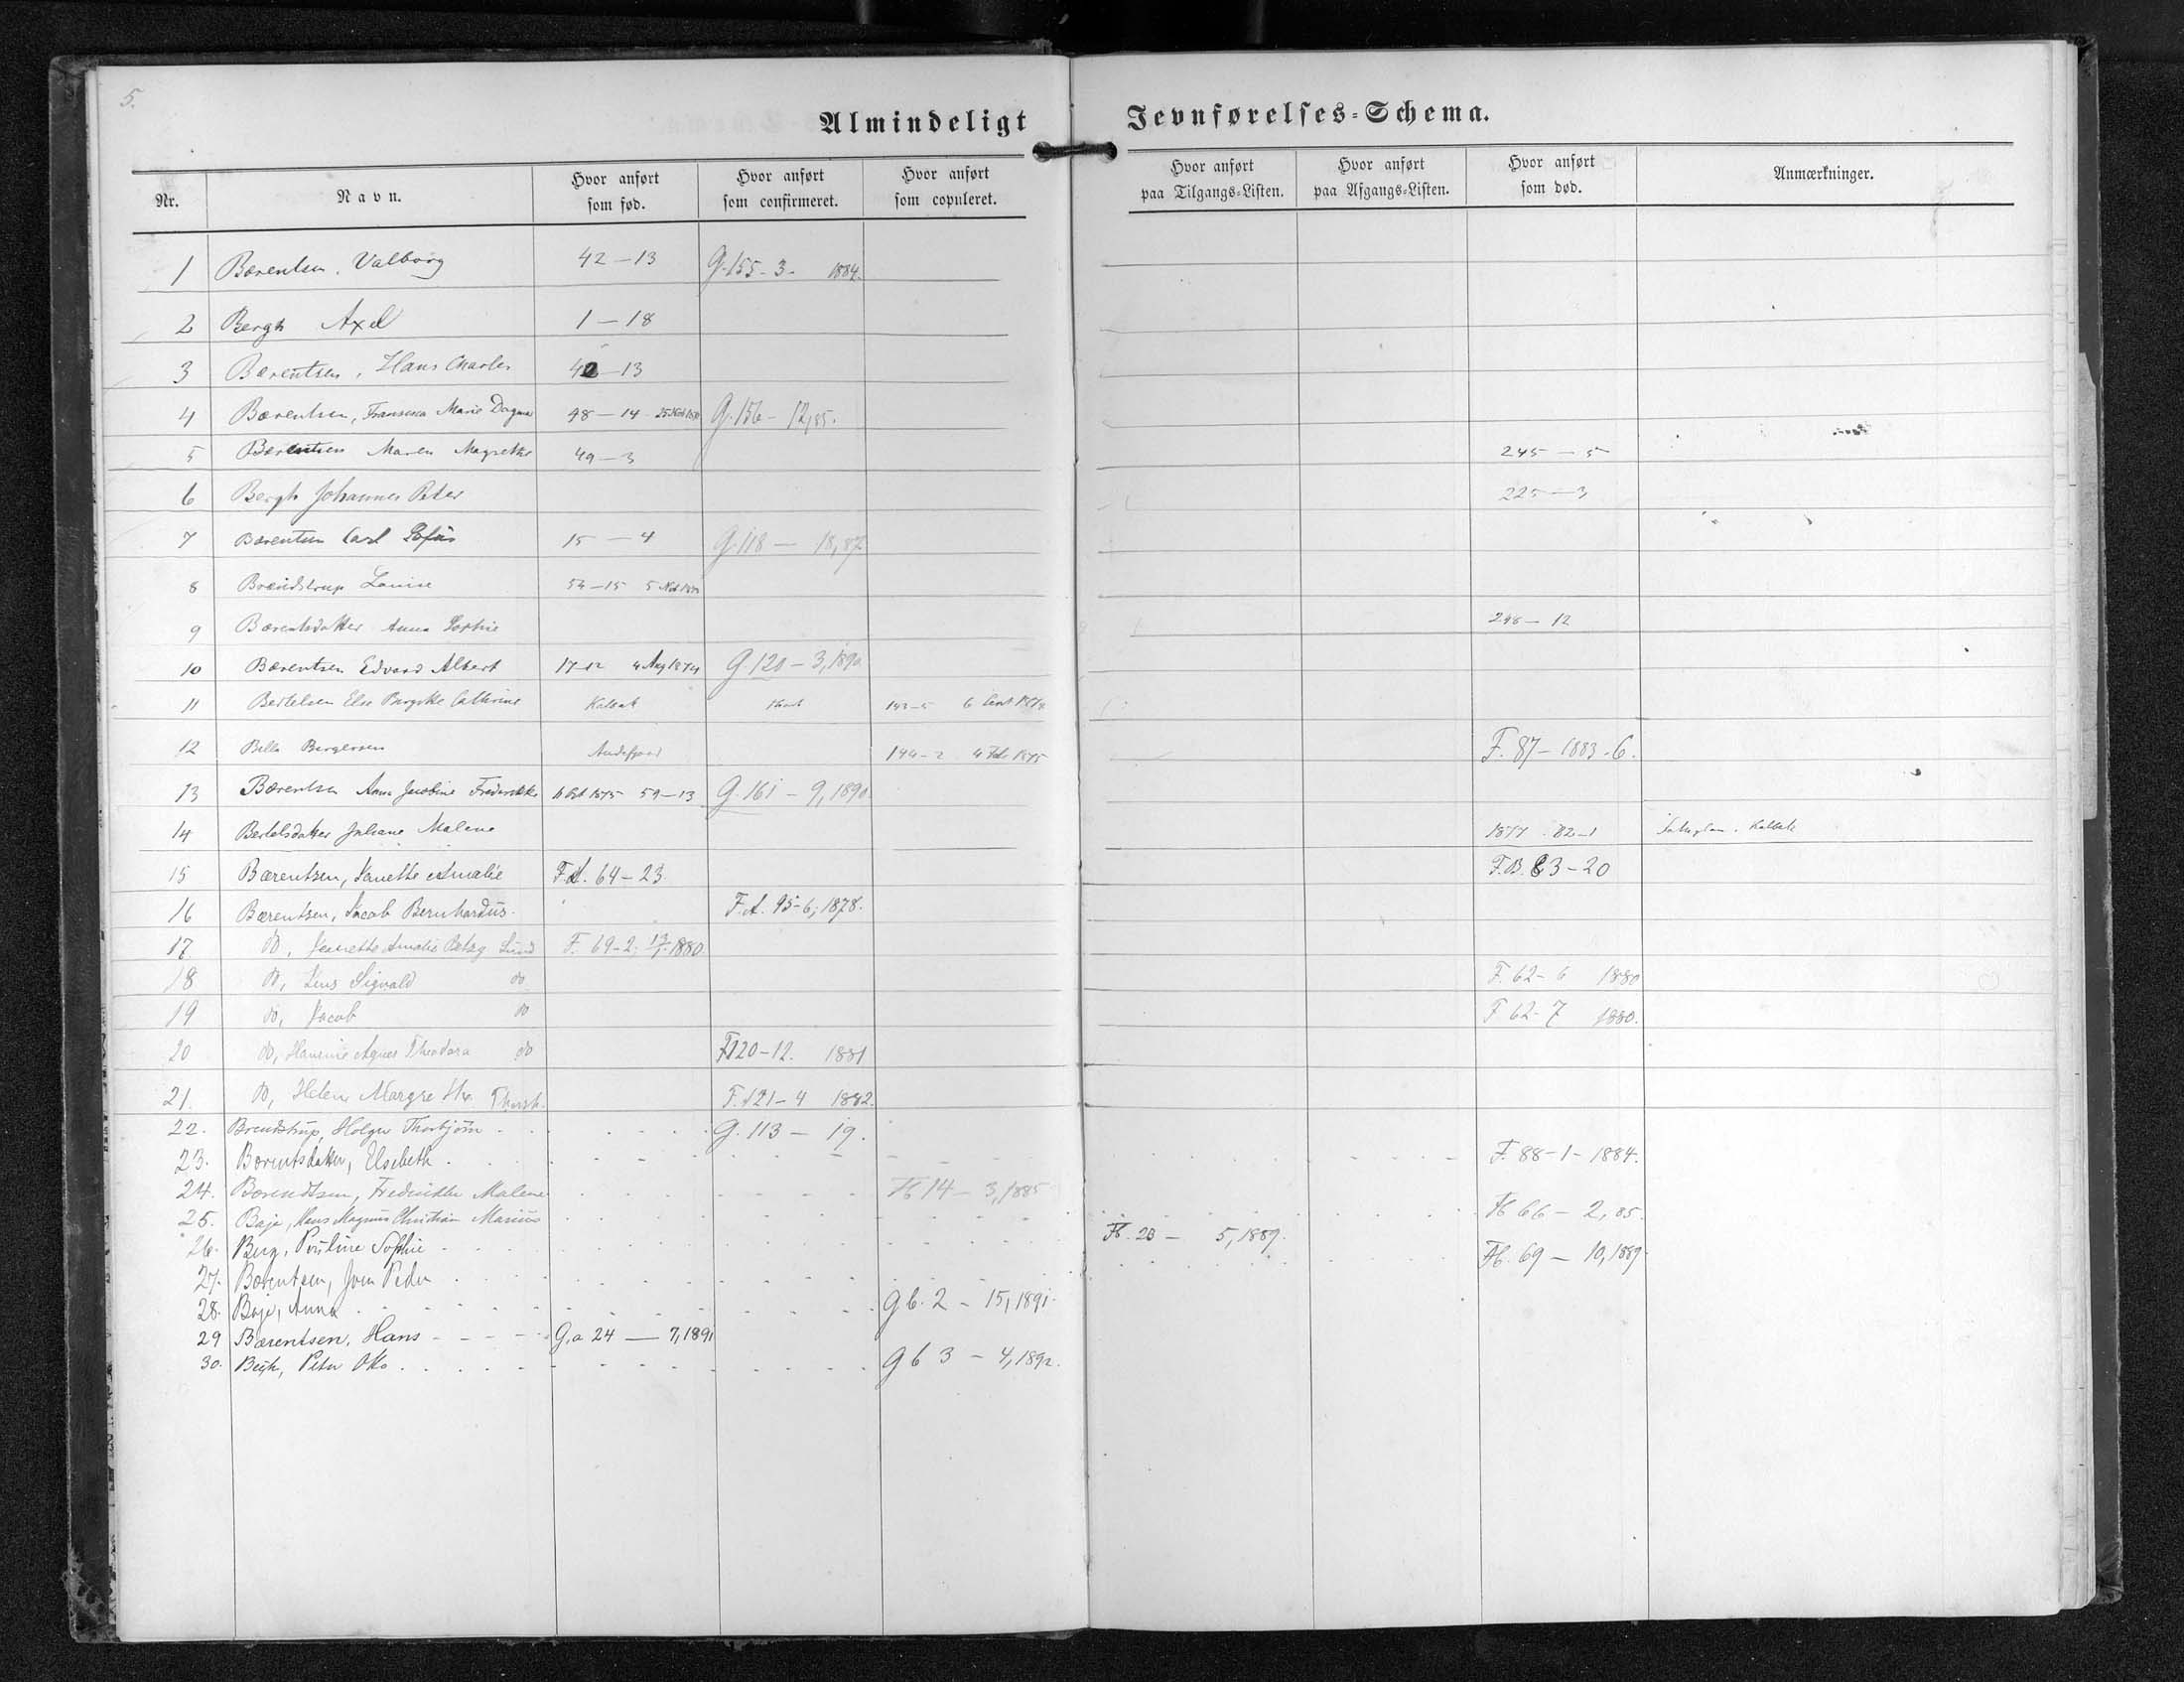 5.
Almindeligt Jevnførelses-Schema.
Nr. Navn. Hvor anført som fød. Hvor anført som confirmeret. Hvor anført som copuleret. Hvor anført paa Tilgangs-Listen. Hvor anført paa Afgangs-Listen. Hvor anført som død. Anmærkninger.
1 Bærentsen, Valborg 42–13 G.155–3– 1884.
2 Bergh Axel 1–18
3 Bærentsen, Hans Charles 42–13
4 Bærentsen, Fransesca Marie Dagmar 48–14 G.156–12,85.
5 Bærentsen Maren Magrethe 49–3 245–5
6 Bergh Johannes Peter 225–3
7 Bærentsen Carl Sofus 15–4 G.118–18,87.
8 Brændstrup Louise 54–15
9 Bærentsdatter Anna Sophie 248–12
10 Bærentsen Edvard Albert 17–12 4 Aug 1874 G.120–3,1890.
11 Bertelsen Else Cathrine Kalbak
12 Bella 144–2 F. 87–1883–6.
13 Bærentsen Anna Jacobine Frederikke 1875 59–13 G.161–9,1890.
14 Bertelsdatter Juliane Malene 1877 82–1 Kalbak
15 Bærentsen, Janette Amalie F.A. 64–23. F.B. 63–20
16 Bærentsen, Jacob Bernhardus. F.A. 95–6; 1878.
17 do, Jeanette Amalie Betsy Lund F. 69–2; 13/1 1880.
18 do, Jens Sigvald do F. 62–6 1880
19 do, Jacob do F 62–7 1880.
20 do, Hansine Agnes Theodora do F.120–12. 1881
21. do, Helene Margrethe Thorsh. F.121–4 1882.
22. Brendstrup, Holger Thorbjörn G. 113–19.
23. Bærentsdatter, Elsebeth F. 88–1–1884.
24. Bærendtsen, Frederikke Malene Fb 14–3,1885
25. Baje, Hans Magnus Christian Marius Fb 66–2,85.
26. Berg, Pouline Sophie Fb. 20–5,1889.
27. Bærentsen, Joen Peder Fb. 69–10,1889.
28. Boje, Anna Gb. 2–15,1891.
29 Bærentsen, Hans G.a 24–7,1891
30. Peter Otto Gb 3–4,1892.